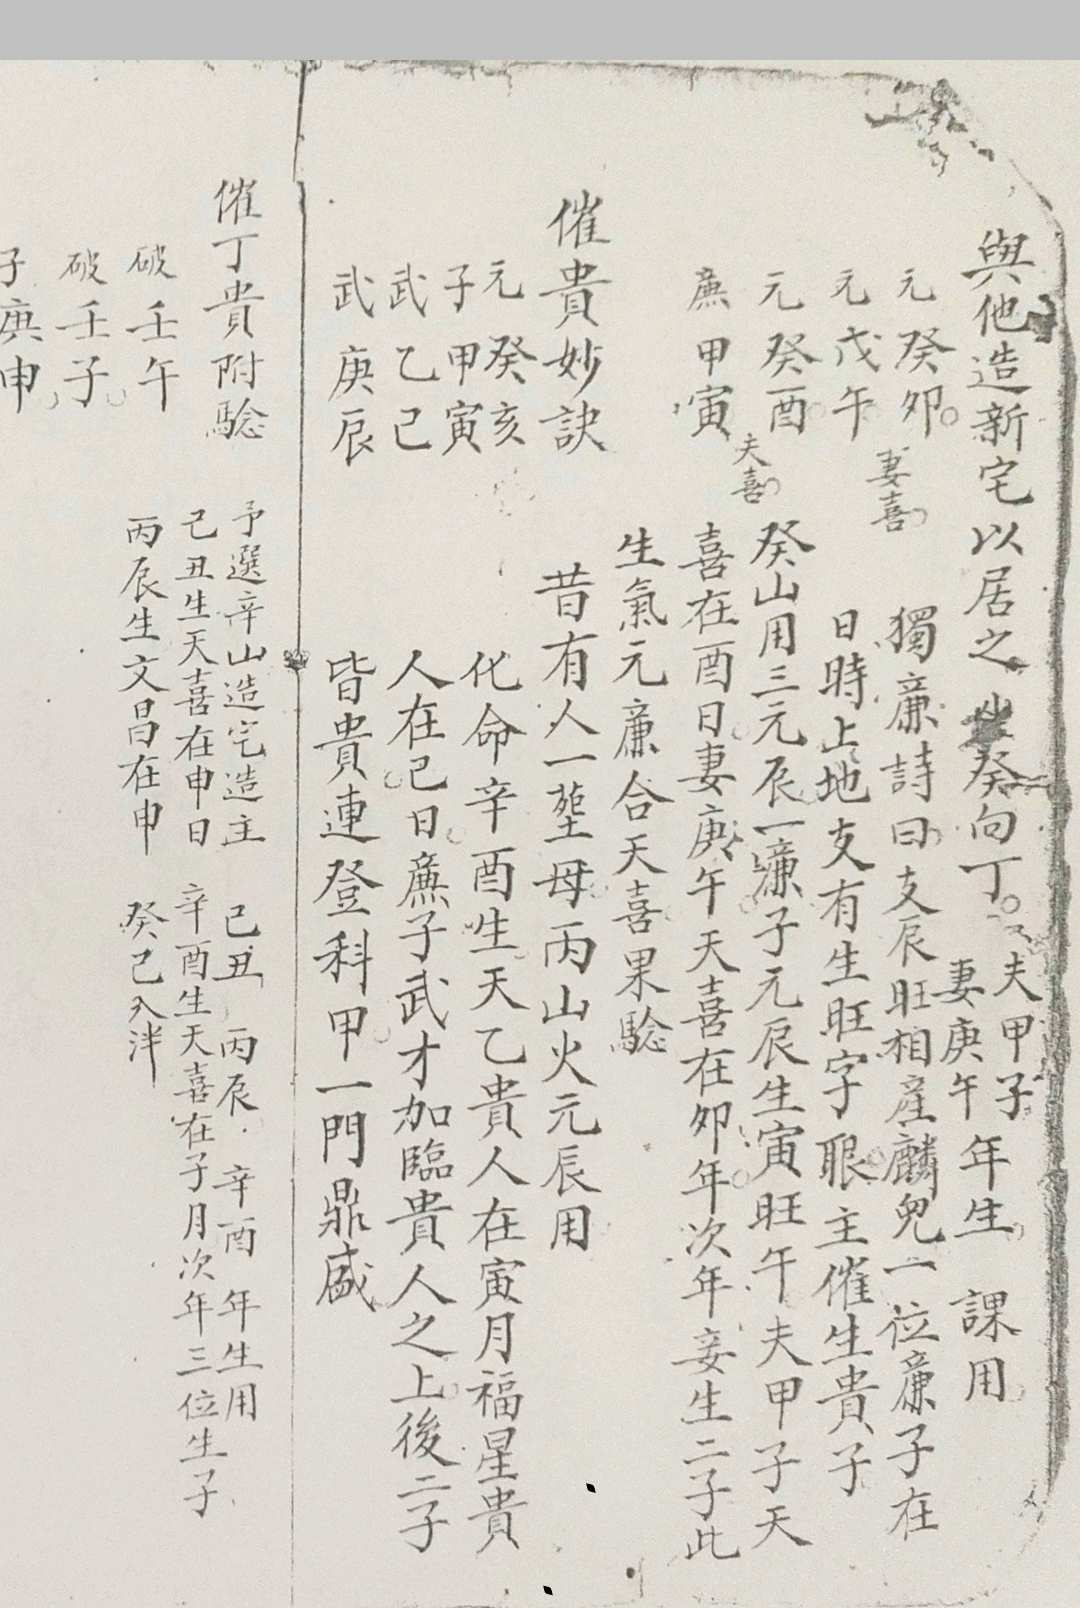 與他造新宅以居之坐癸向丁。夫甲子妻庚午年生 課用
元癸卯 妻喜 獨廉詩曰支辰旺相產麟兒一位廉子在
元戊午 日時上地支有生旺字眼主催生貴子
元癸酉 癸山用三元辰一廉子元辰生寅旺午夫甲子天
廉甲寅 夫喜 喜在酉日妻庚午天喜在卯年次年妾生二子此
生氣元廉合天喜果驗
催貴妙訣 昔有人一塟母丙山火元辰用
元癸亥 化命辛酉生天乙貴人在寅月福星貴
子甲寅
武乙巳 人在巳日廉子武才加臨貴人之上後二子
武庚辰 皆貴連登科甲一門鼎盛
催丁貴附驗 予選辛山造宅造主 己丑 丙辰 辛酉 年生用
己丑生天喜在申日 辛酉生天喜在子月次年三位生子
破壬午 丙辰生文昌在申 癸巳入泮
破壬子
子庚申